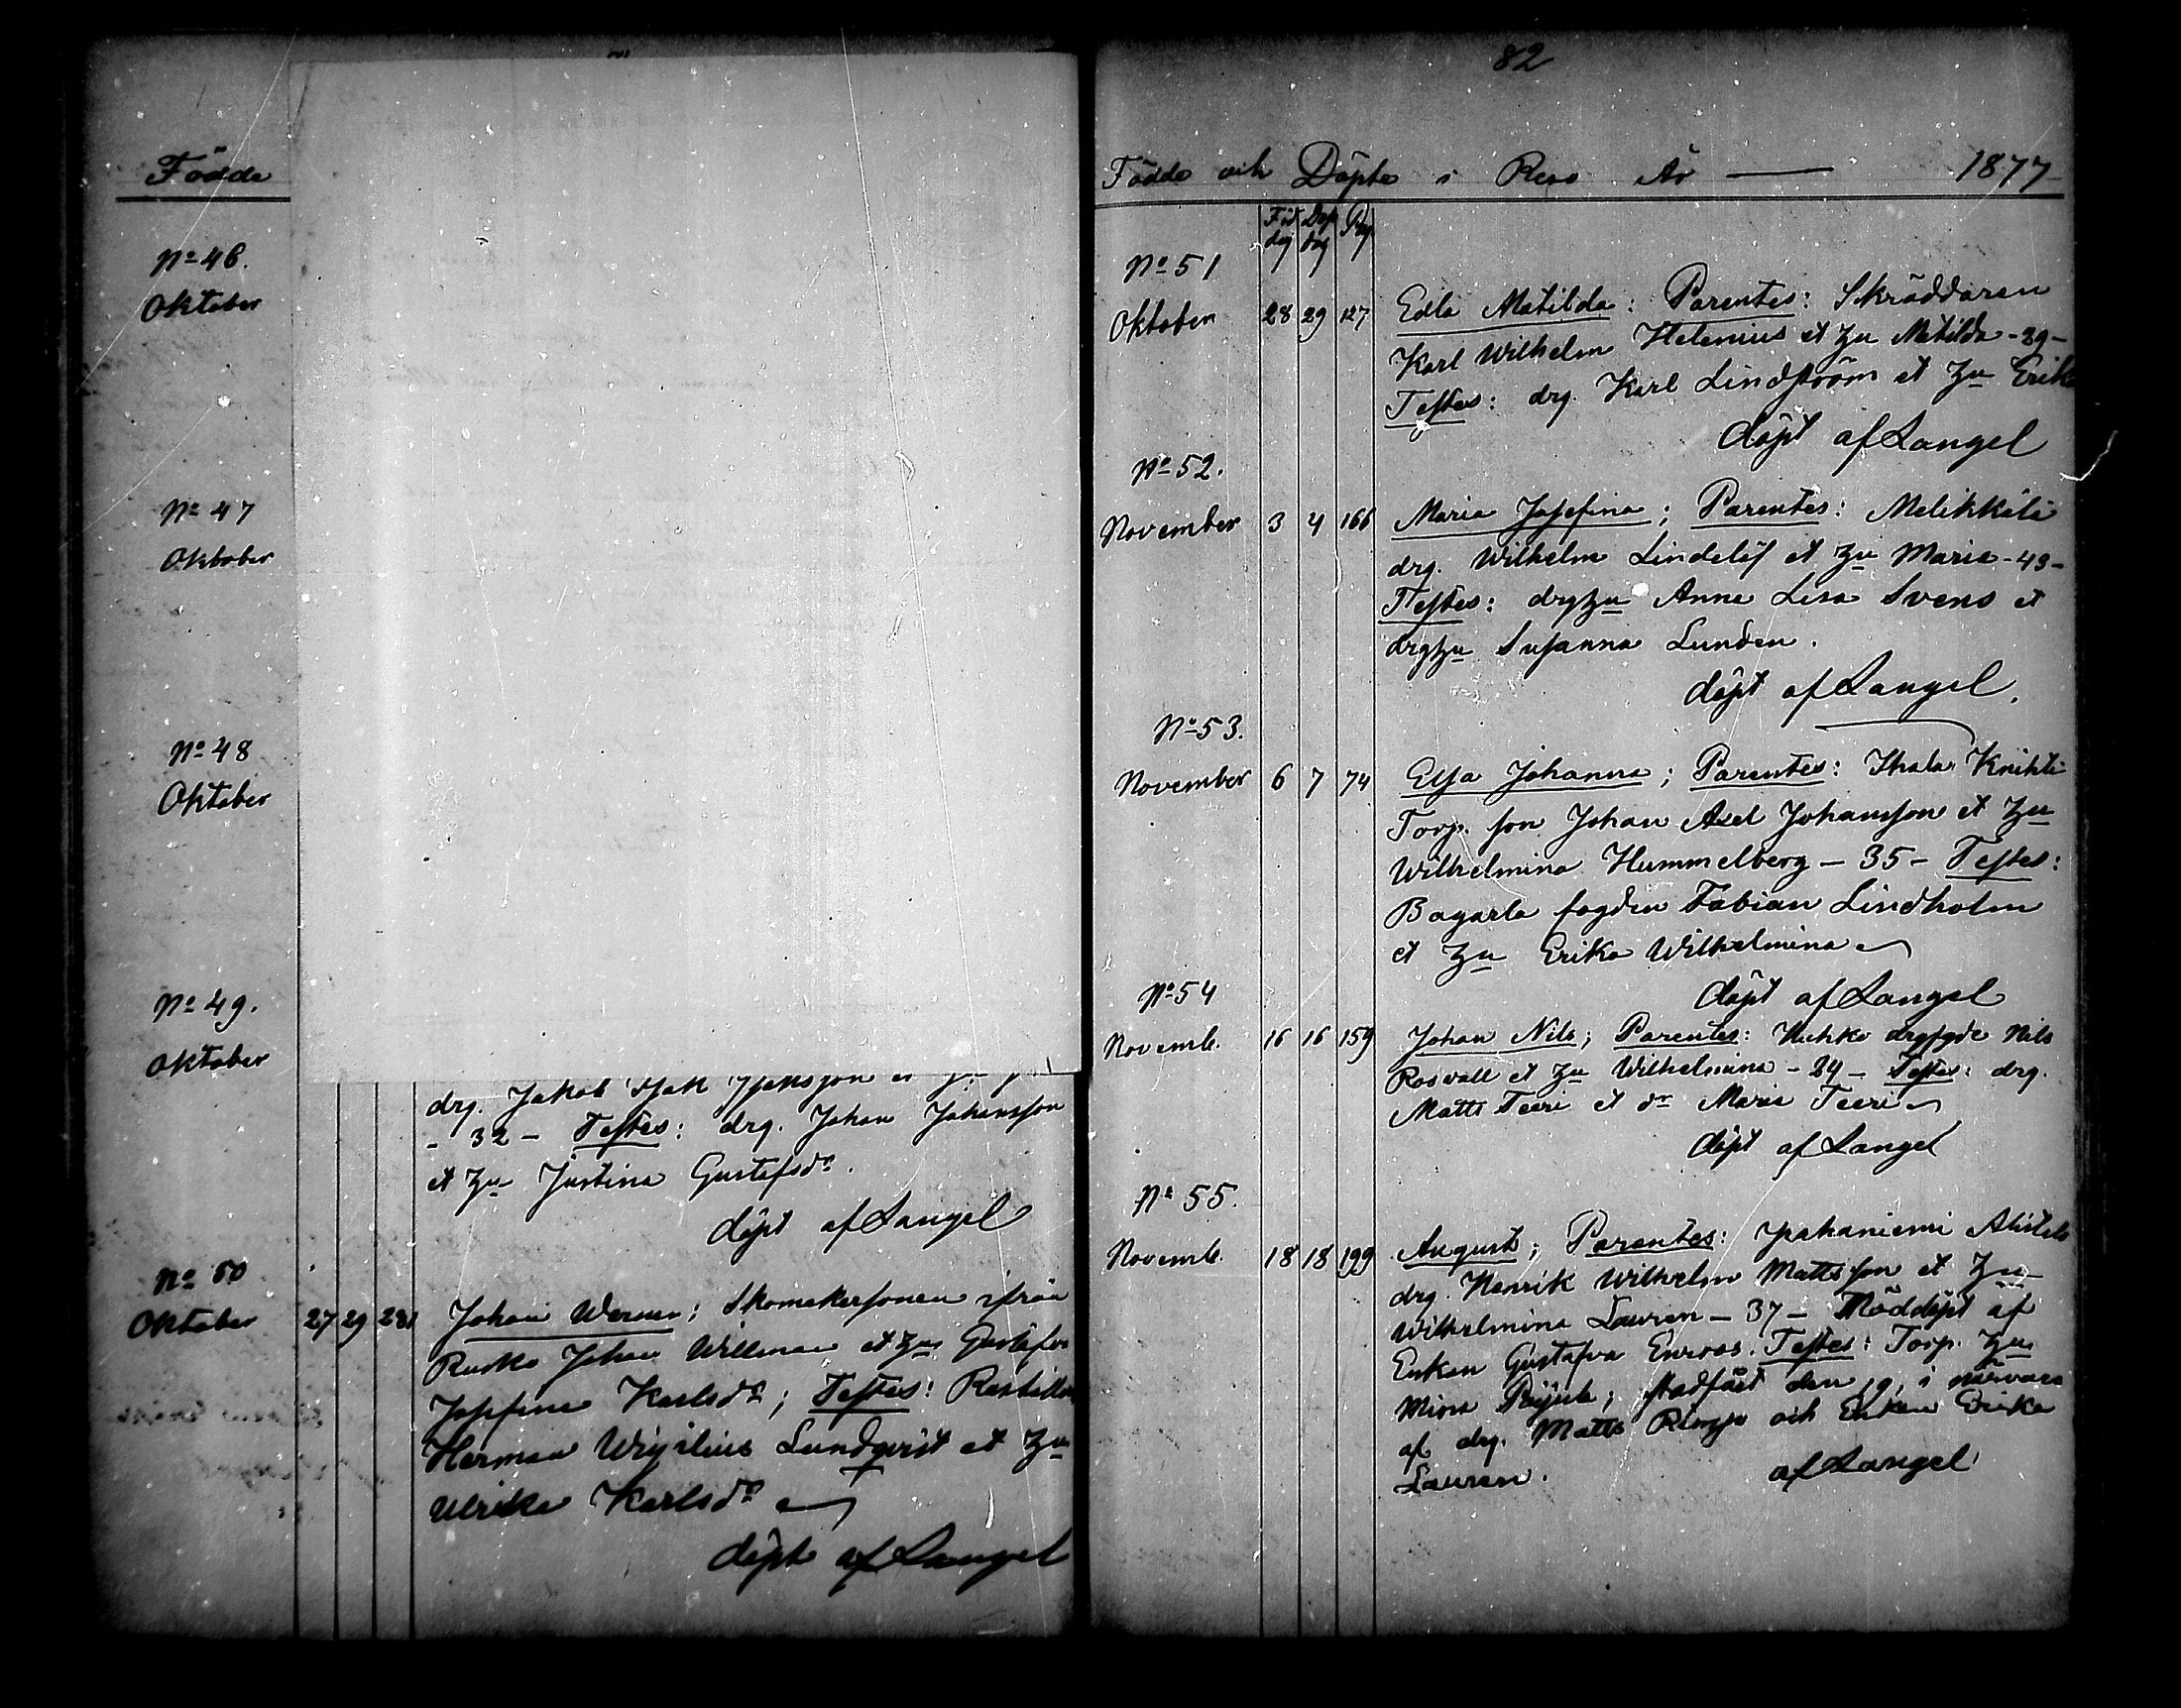 Födde
No 46.
Oktober
No 47
Oktober
No 48
Oktober
No 49.
Oktober
drg. Jakob Isak
- 32 - Testes: drg. Johan Johansson
et Hu Justina Gustafsdr.
döpt af Langel
No 50
Oktober 27 29 281 Johan Werner; Skomakersonen ifrån
Rusko Johan Willman et Hu Gustafva
Josefina Karlsdr; Testes:
Herman Lundqvist et Hu
Ulrika Karlsdr
döpt af Langel
82
Födde och Döpte i Reso År — 1877
Föd dag Döp dag Pag
No 51
Oktober 28 29 127 Edla Matilda: Parentes: Skräddaren
Karl Wilhelm Helenius et Hu Matilda - 29 -
Testes: drg. Karl Lindström et Hu Erika
döpt af Langel
No 52.
November 3 4 166 Maria Josefina; Parentes:
drg. Wilhelm Lindelöf et Hu Maria - 43 -
Testes: drghu Anna Lisa Svens et
drghu Susanna Lunden.
döpt af Langel.
No 53.
November 6 7 74 Elsa Johanna; Parentes: Ihala Knihti
Torp. son Johan Axel Johansson et Hu
Wilhelmina Hummelberg - 35 - Testes:
Bagarla fogden Fabian Lindholm
et Hu Erika Wilhelmina
döpt af Langel
No 54
Novemb. 16 16 159 Johan Nils; Parentes: Nils
Rosvall et Hu Wilhelmina - 24 - Testes: drg.
Matts Teeri et dr Maria Teeri
döpt af Langel
No 55.
Novemb. 18 18 199 August; Parentes:
drg. Henrik Wilhelm Mattsson et Hu
Wilhelmina Lauren - 37 - Nöddöpt af
Enkan Gustafva Enroos. Testes: Torp. Hu
Mina; stadfäst den 19 i närvaro
af drg. Matts och Enkan Erika
Lauren. af Langel